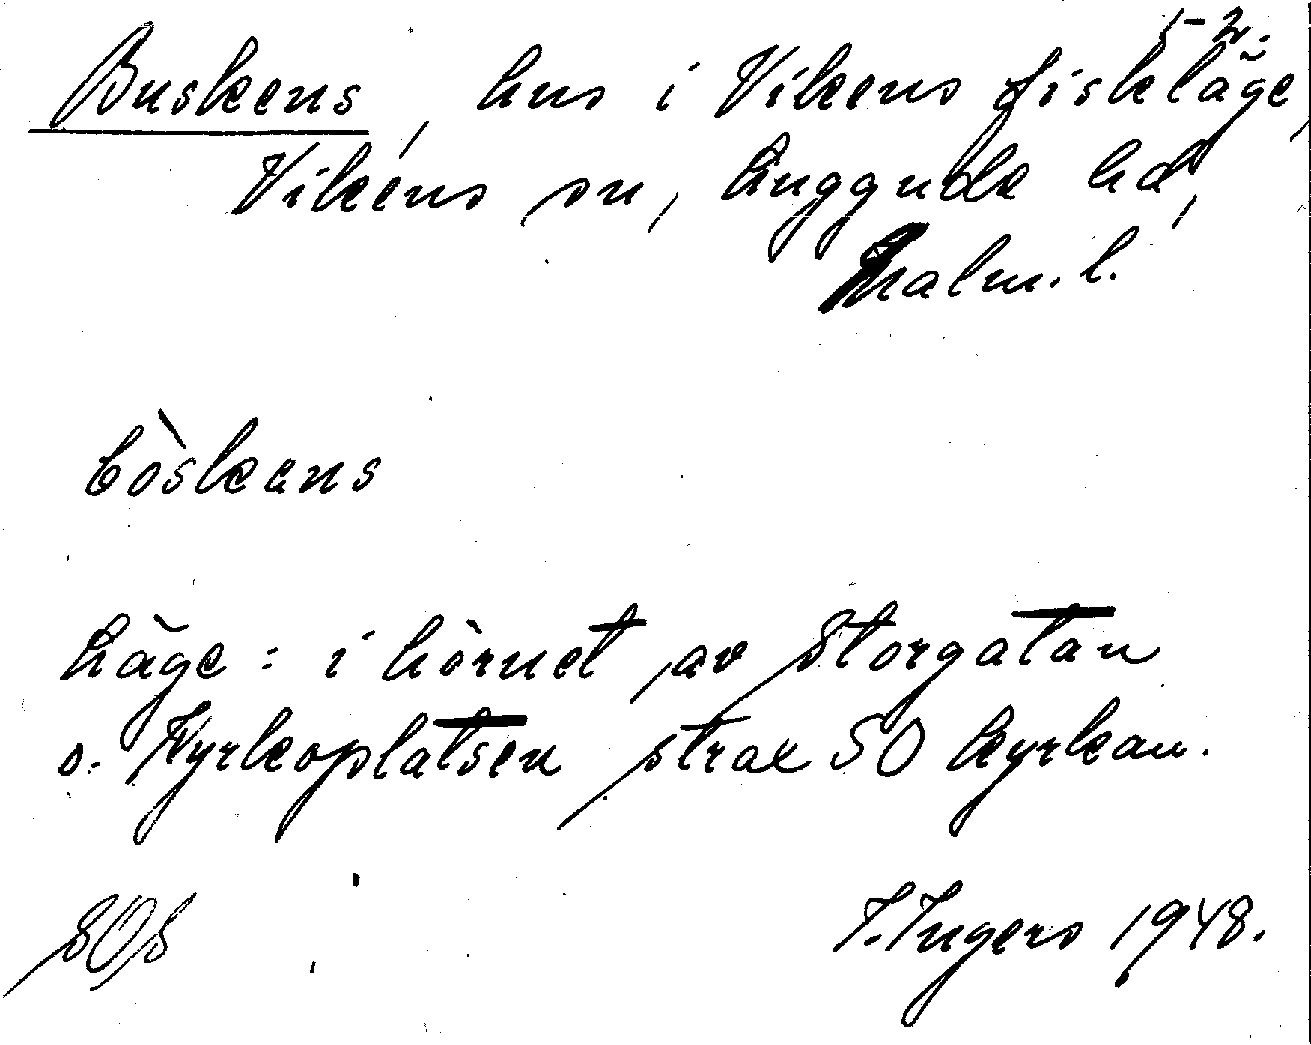 1-2.
Buskens, hus i Vikens fiskläge,
Vikens sn, Luggude hd,
Malm. l.
bòskens
Läge: i hörnet av Storgatan
o. Kyrkoplatsen strax SO kyrkan.
SOS I. Ingers 1948.